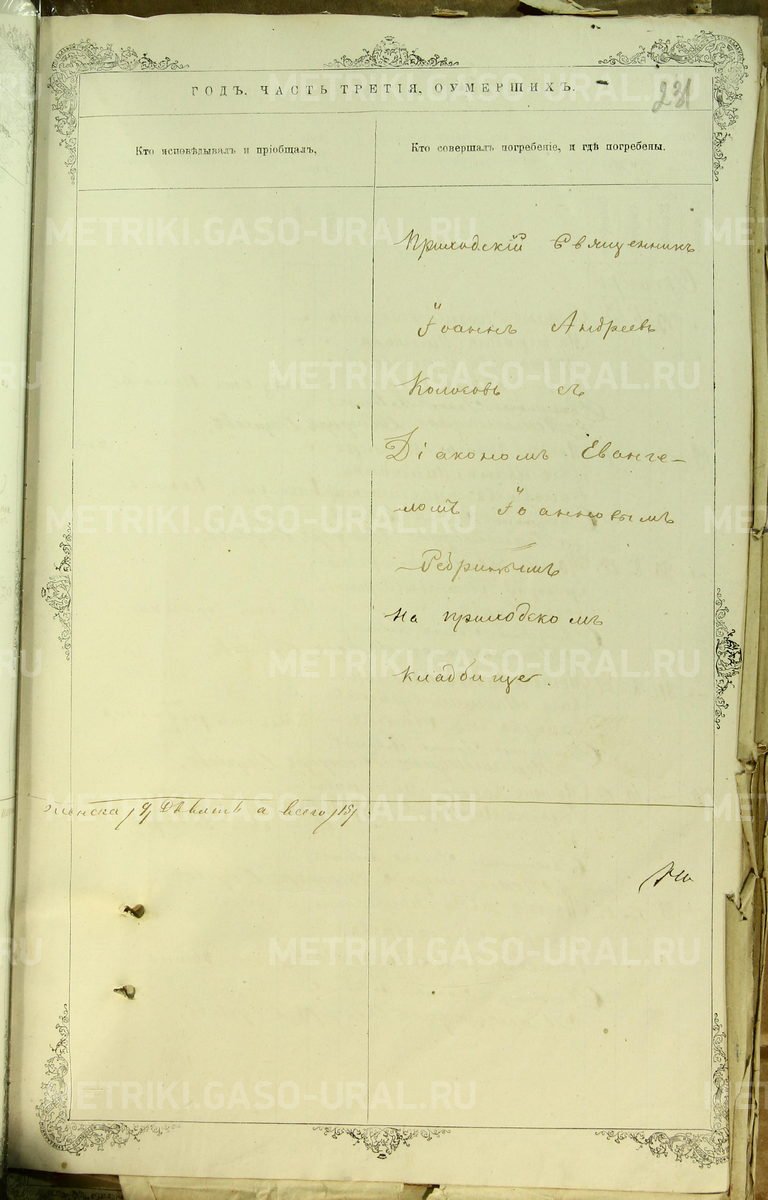 ГОДЪ, ЧАСТЬ ТРЕТІЯ, ОУМЕРШИХЪ.
231
Кто исповѣдывалъ и пріобщалъ,
Кто совершалъ погребеніе, и гдѣ погребены.
Приходскій Священникъ
Іоаннъ Андреевъ
Колосовъ съ
Діакономъ Еванге-
ломъ Іоанновымъ
на приходскомъ
кладбище.
женска /9/ Девять а всего /15/
METRIKI.GASO-URAL.RU